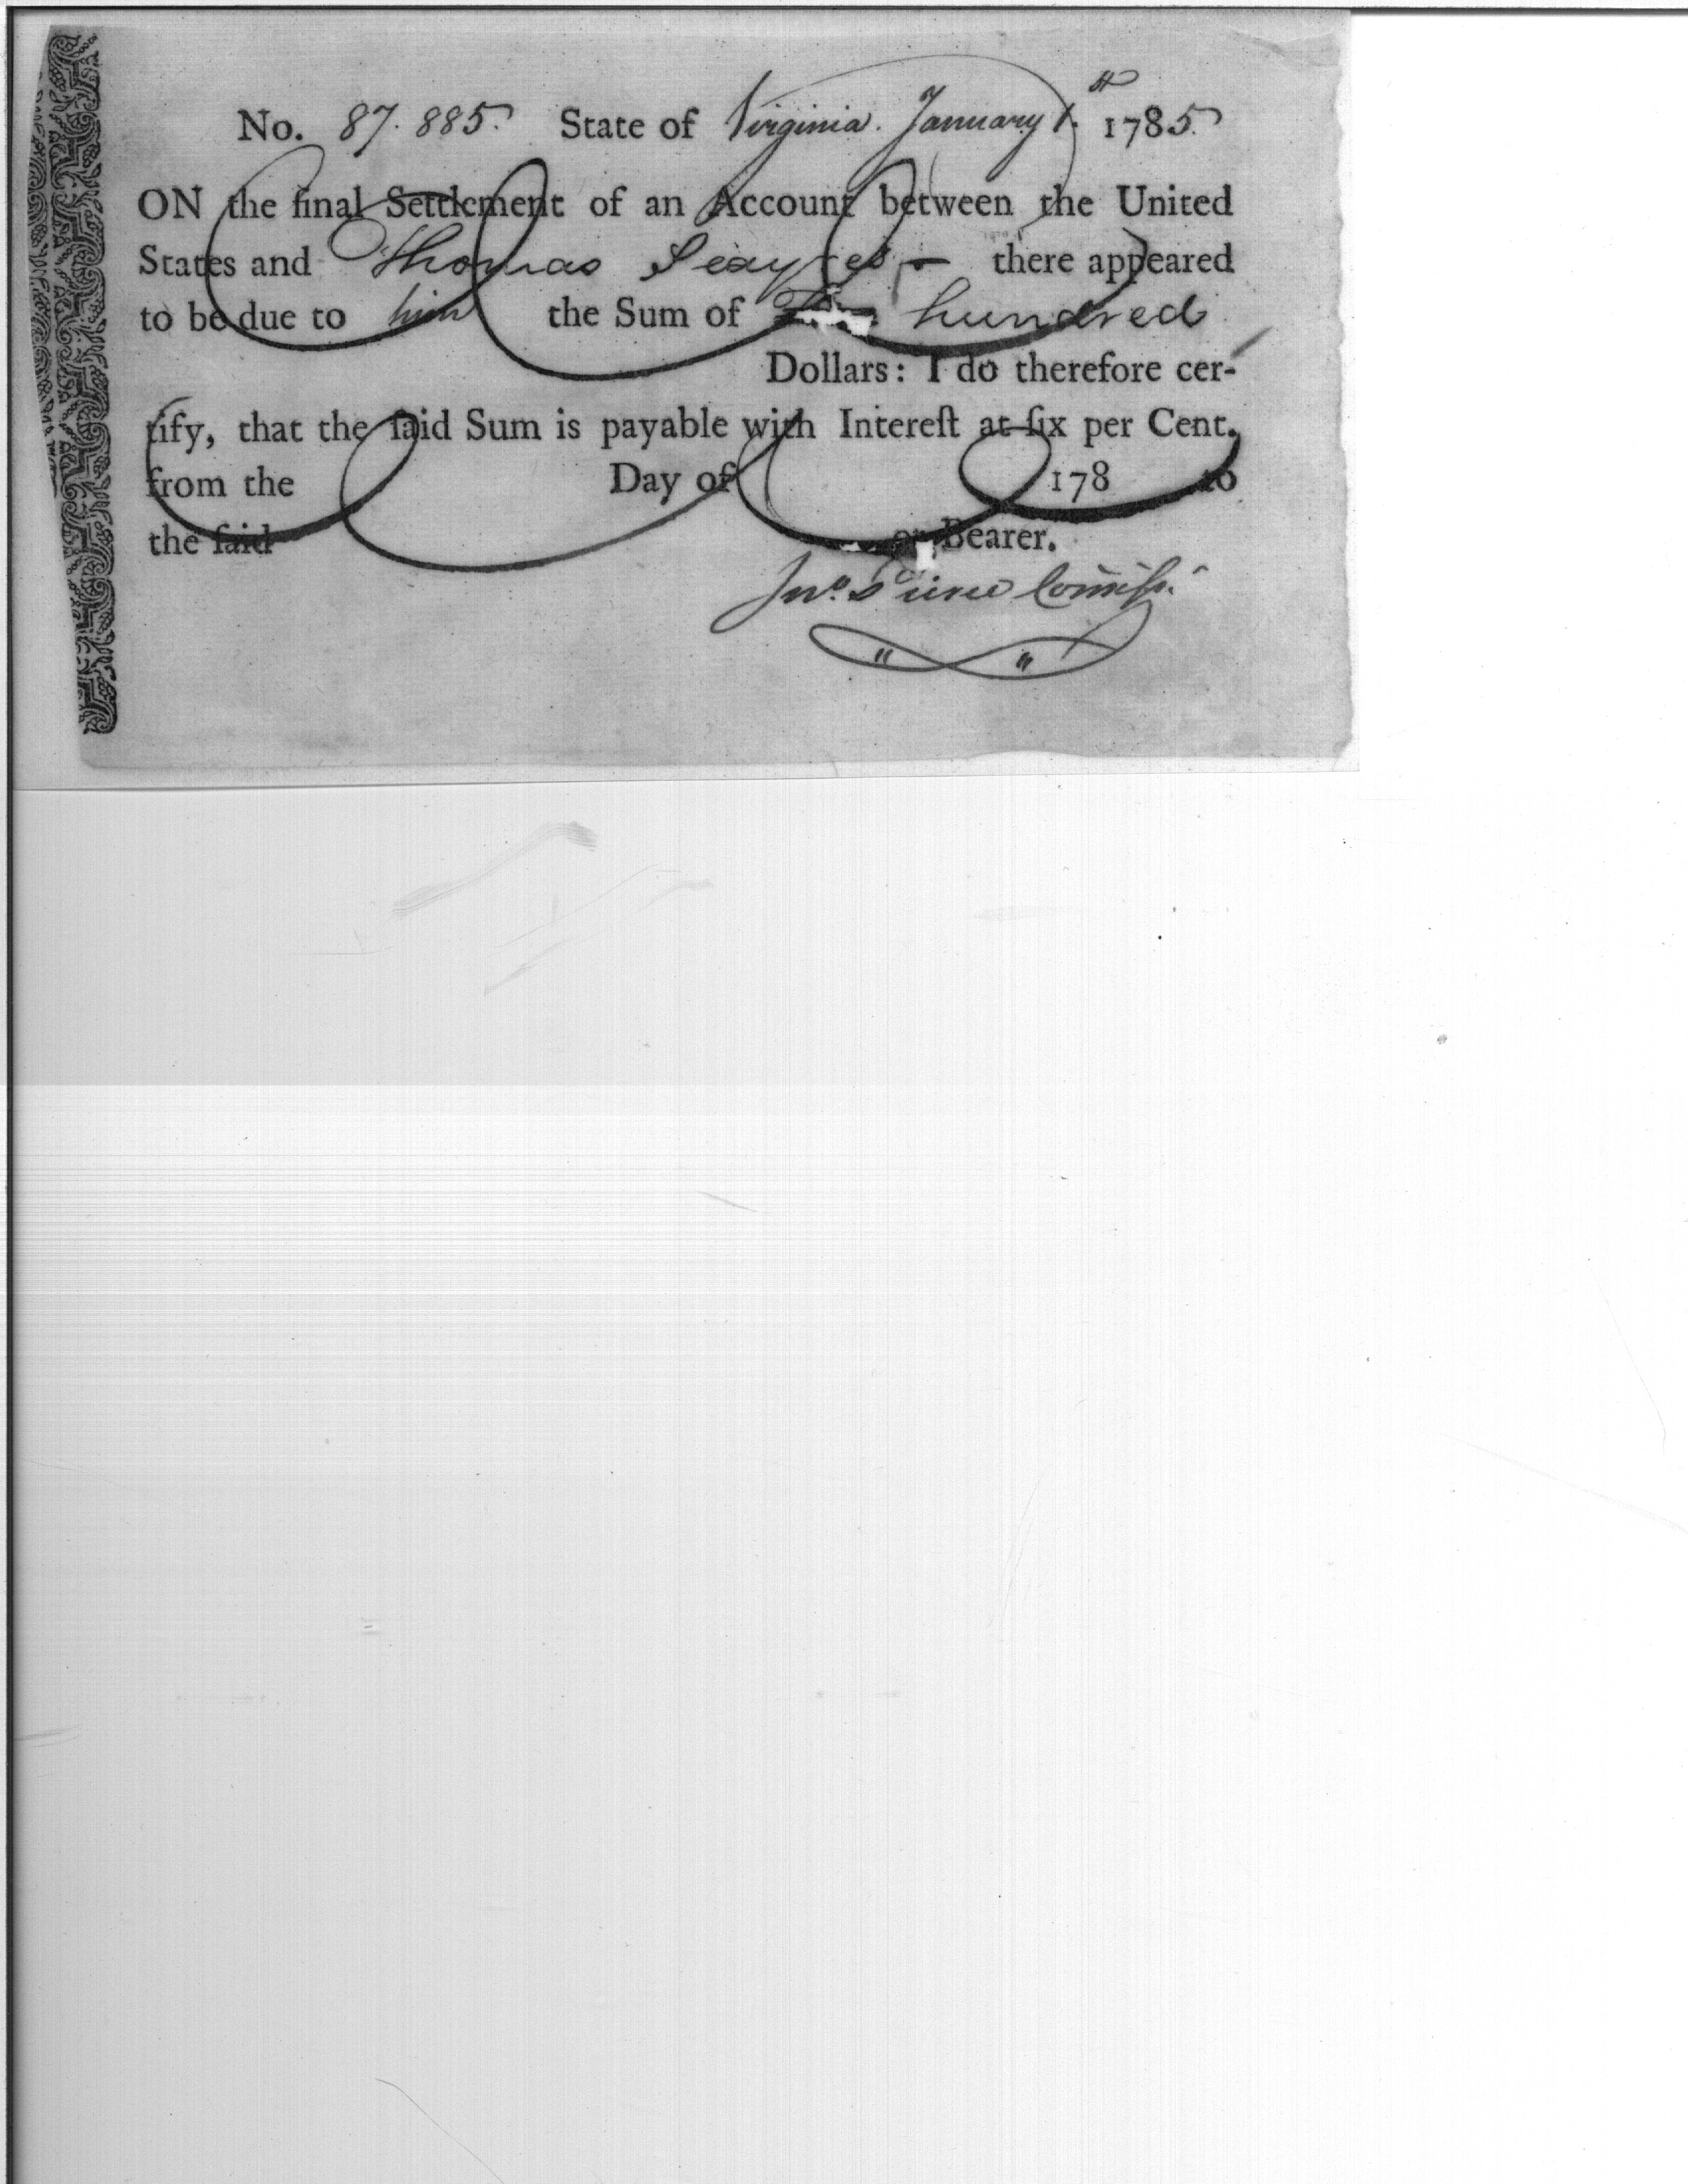 No. 87.885. State of Virginia. January 1. st 1785.
ON the final Settlement of an Account between the United
States and Thomas there appeared
to be due to him the Sum of hundred
Dollars: I do therefore cer-
tify, that the ſaid Sum is payable with Intereſt at ſix per Cent.
from the Day of 178 to
the ſaid or Bearer.
Jno.